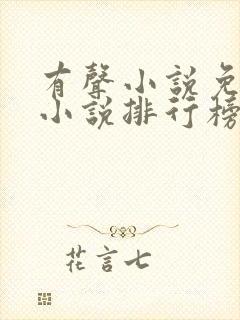 有聲小説免
小説排行榜
花言七